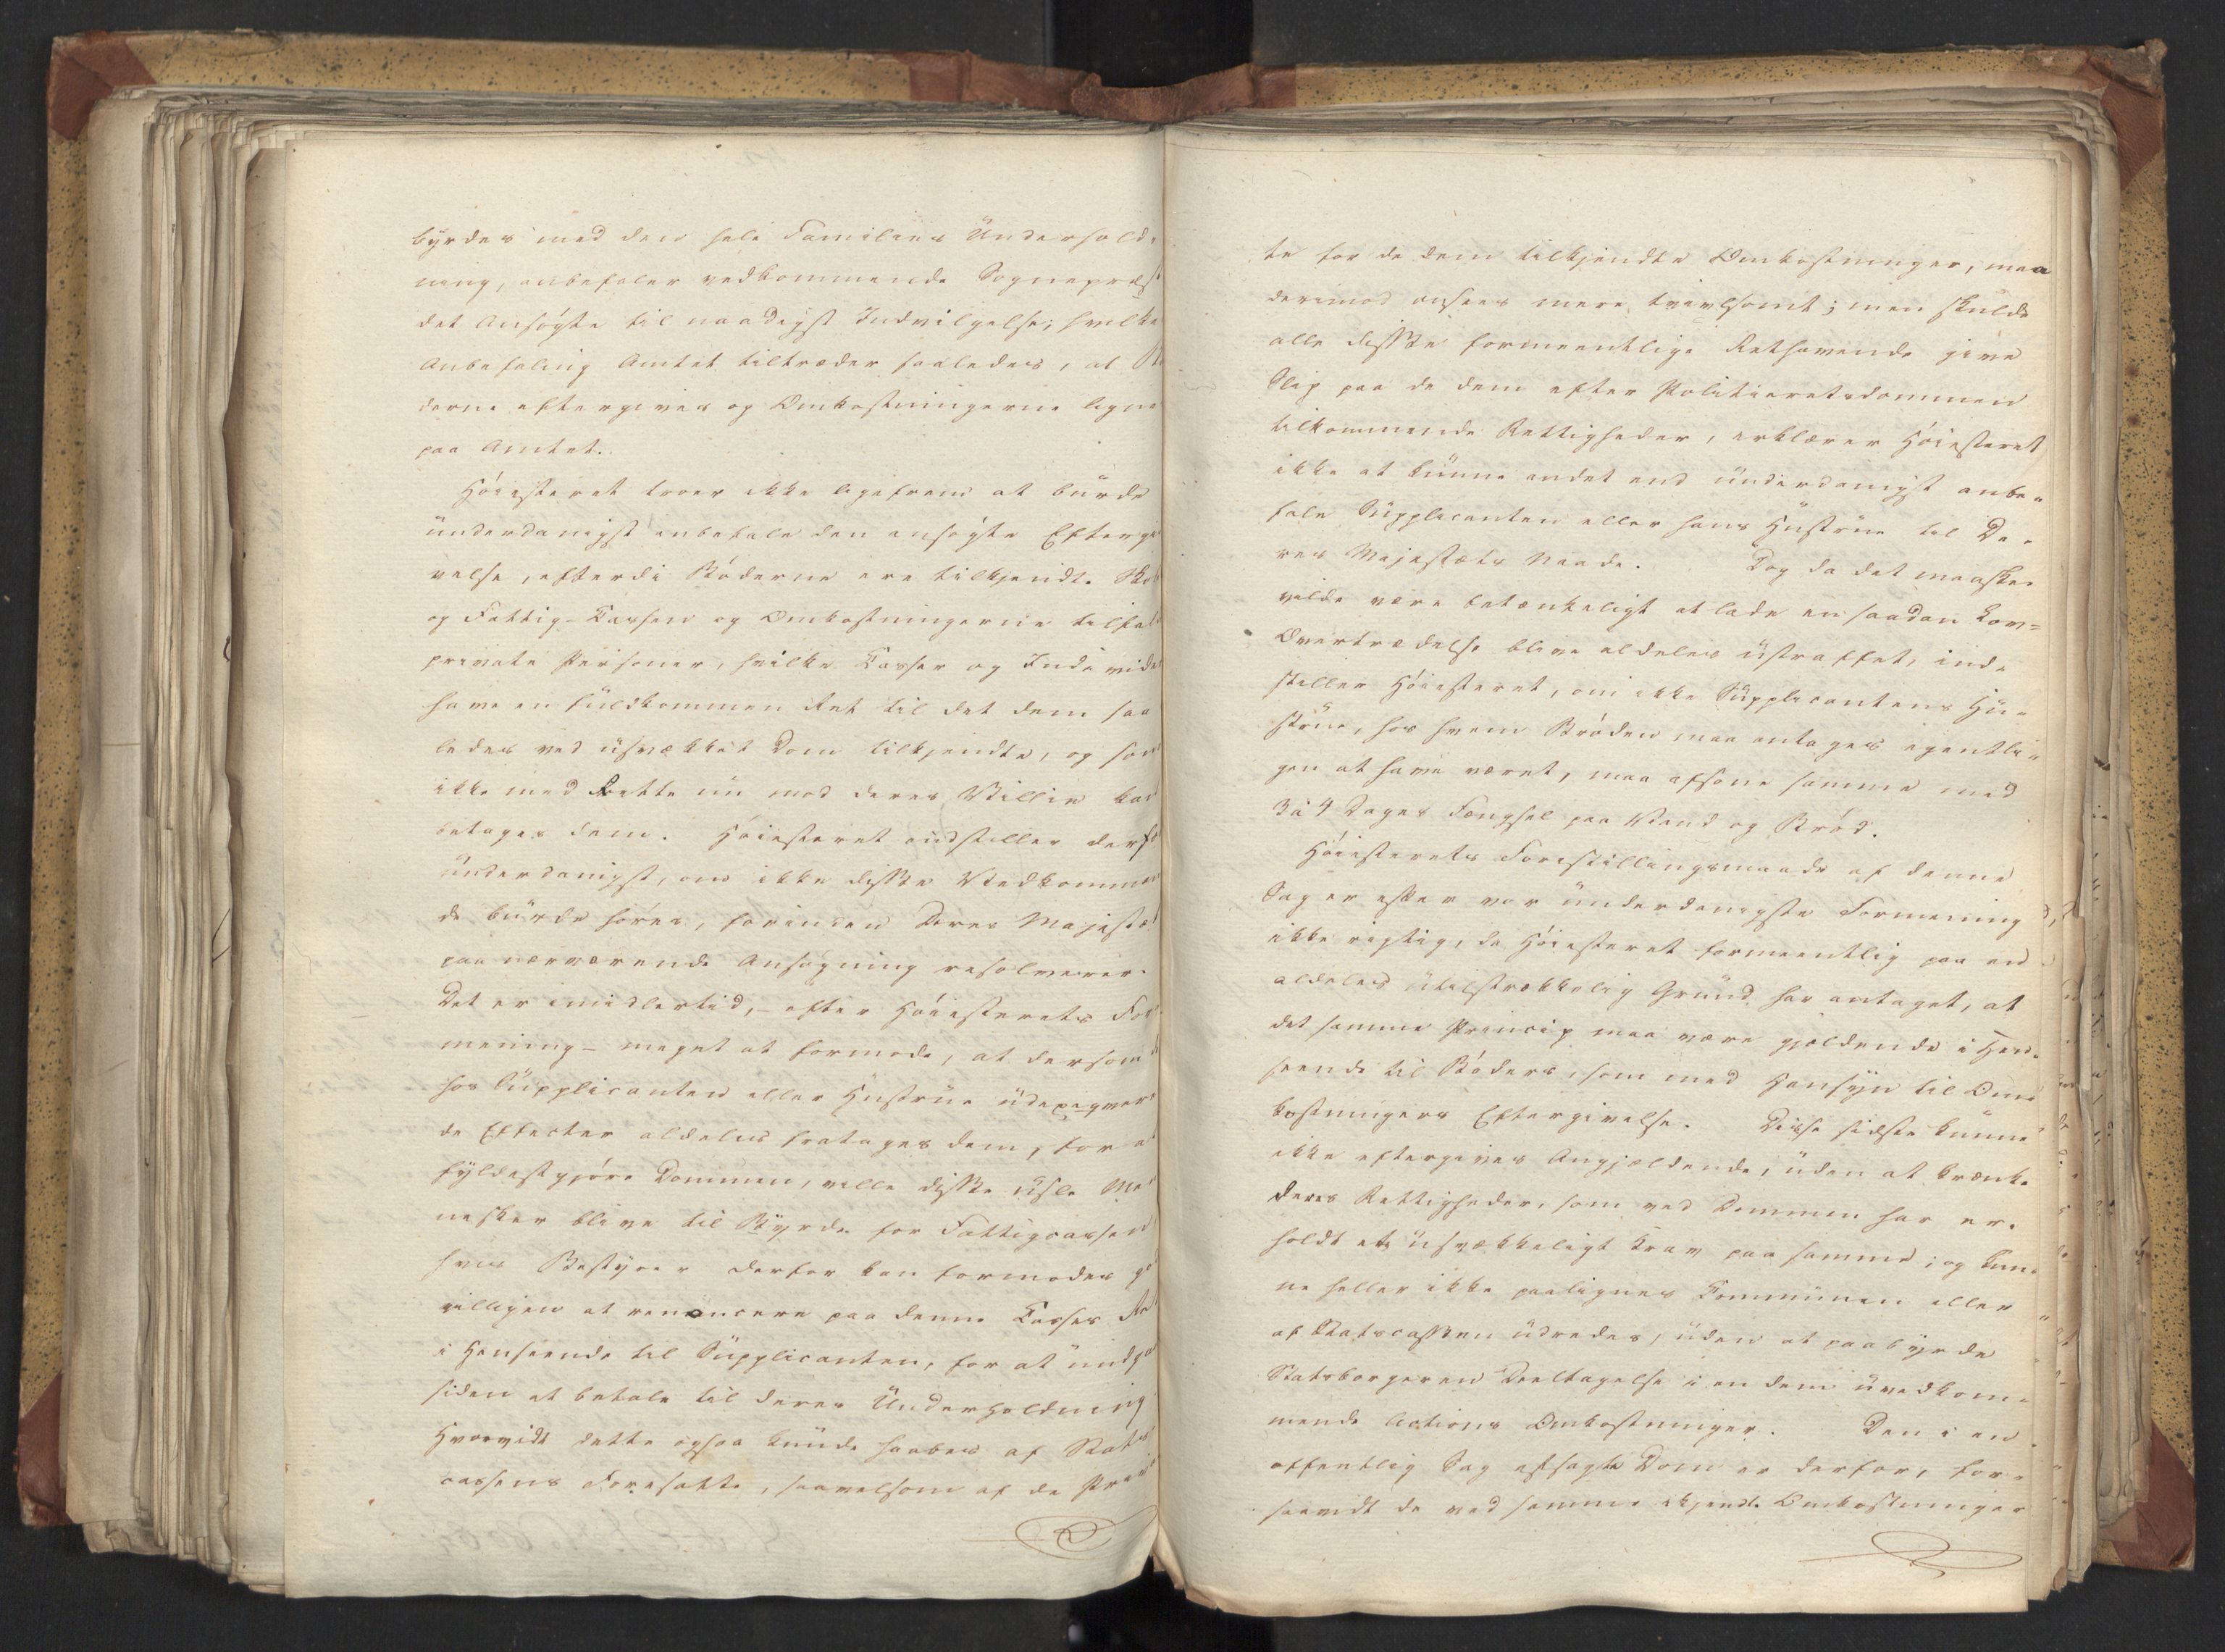 byrdes med den hele Familiens Underhold-
ning, anbefaler vedkommende Sognepræst
det Ansøgte til naadigst Indvilgelse; hvilken
Anbefaling Amtet tiltræder saaledes, at Bø
derne eftergives og Omkostningerne lignes
paa Amtet.
Høiesteret troer ikke ligefrem at burde
underdanigst anbefale den ansøgte Eftergi
velse, efterdi Bøderne ere tilkjendte Skole
og Fattig-Cassen og Omkostningerne tilfal
private Personer, hvilke Casser og Individer
have en fuldkommen Ret til det dem saa
ledes ved usvækket Dom tilkjendte, og som
ikke med Rette nu mod deres Villie kan
betages dem. Høiesteret indstiller derfor
underdanigst, om ikke disse Vedkommen
de burde høres, forinden Deres Majestæt
paa nærværende Ansøgning resolverer.
Det er imidlertid, - efter Høiesterets For
mening - meget at formode, at dersom de
hos Supplicanten eller Hustrue udpegede
de Effecter aldeles fratages dem, for at
fyldestgjøre Dommen, ville disse usle Men
nesker blive til Byrde for Fattigcassen
hvis Bestyrer derfor kan formodes
villigen at renoncere paa denne Casses Ret
i Henseende til Supplicanten, for at undgaa
siden at betale til deres Underholdning
Hvorvidt dette ogsaa kunde haabes af Stats
cassens Foresatte, saavelsom af de Priva
te for de dem tilkjendte Omkostninger, maa
derimod ansees mere tvivlsomt; men skulde
alle disse formeentlige Rethavende give
Slip paa de dem efter Politieretsdommen
tilkommende Rettigheder, erklærer Høiesteret
ikke at kunne andet end underdanigst anbe-
fale Supplicanten eller hans Hustrue til De-
res Majestæts Naade. Dog da det maaskee
vilde være betænkeligt at lade en saadan Lov=
Overtrædelse blive aldeles ustraffet, ind-
stiller Høiesteret, om ikke Supplicantens Hu-
strue, hos hvem Brøden maa antages egentli-
gen at have været, maa afsone samme med
3 à 4 Dages Fængsel paa Vand og Brød.
Høiesterets Forestillingsmaade af denne
Sag er efter vor underdanigste Formening
ikke rigtig, da Høiesteret formeentlig paa en
aldeles utilstrækkelig Grund har antaget, at
det samme Princip maa være gjældende i Hen-
seende til Bøders, som med Hensyn til Om-
kostningers Eftergivelse. Disse sidste kunne
ikke eftergives Angjældende, uden at krænke
deres Rettigheder, som ved Dommen har er-
holdt et usvækkeligt Krav paa samme; og kun-
ne heller ikke paalignes Communen eller
af Statscassen udredes, uden at paabyrde
Statsborgeren Deeltagelse i en dem uvedkom-
mende Actions Omkostninger. Den i en
offentlig Sag afsagte Dom er derfor, for-
saavidt de ved samme ikjendte Omkostninger